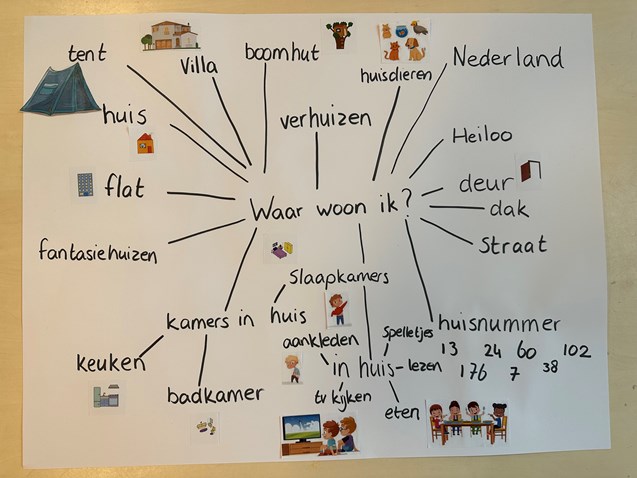 tent
villa
boomhut
huisdieren
Nederland
huis
verhuizen
Heiloo
flat
Waar woon ik?
deur
dak
Straat
fantasiehuizen
Slaapkamers
kamers in huis
keuken
badkamer
aankleden
Spelletjes
in huis - lezen
tv kijken
eten
huisnummer
13 24 60 102
176 7 38